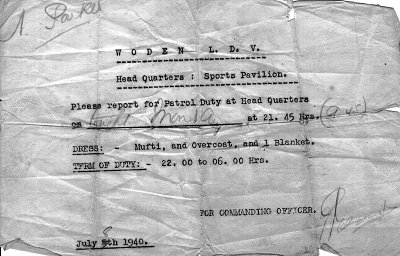 A. Parker
W O D E N  L. D. V.
Head Quarters : Sports Pavilion.
Please report for Patrol Duty at Head Quarters
on Monday at 21. 45 Hrs.
DRESS: - Mufti, and Overcoat, and 1 Blanket.
TERM OF DUTY: - 22. 00 to 06. 00 Hrs.
FOR COMMANDING OFFICER.
July 8th 1940.